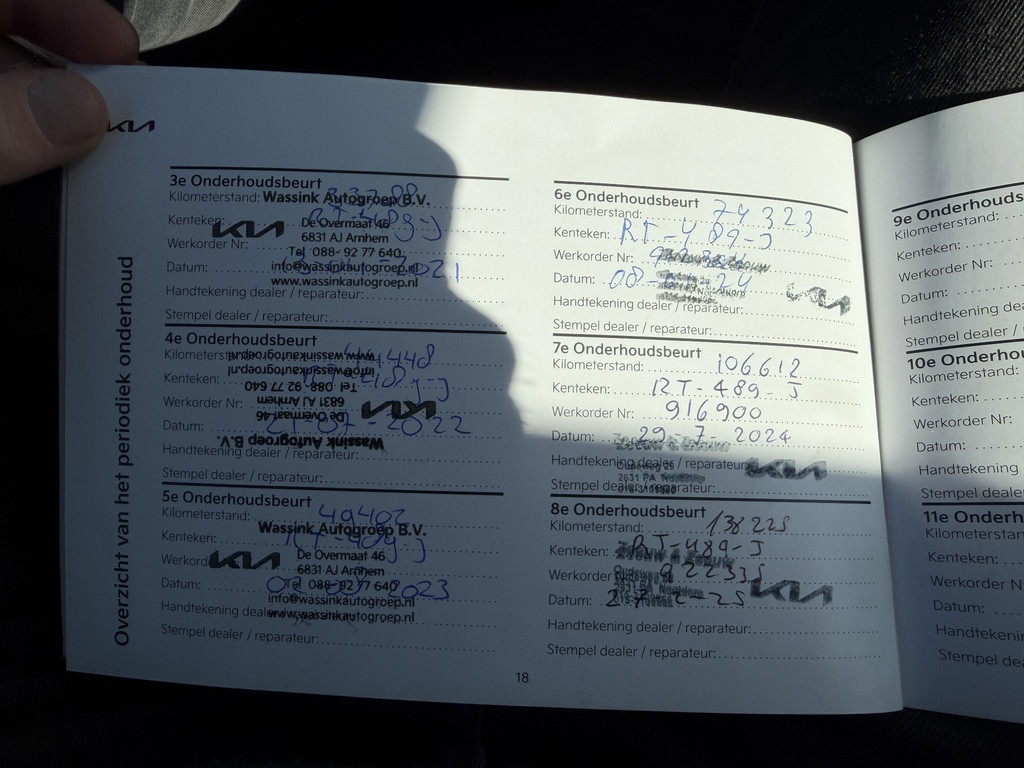 KIA
Overzicht van het periodiek onderhoud
3e Onderhoudsbeurt
Kilometerstand: Wassink Autogroep B.V.
Kenteken: De Overmaat 46
KIA
6831 AJ Arnhem
Werkorder Nr: Tel 088- 92 77 640
Datum: info@wassinkautogroep.nl 2021
www.wassinkautogroep.nl
Handtekening dealer / reparateur:
Stempel dealer / reparateur:
4e Onderhoudsbeurt
www.wassinkautogroep.nl
info@wassinkautogroep.nl
Kenteken: Tel 088- 92 77 640
Werkorder Nr: 6831 AJ Arnhem KIA
De Overmaat 46
Datum: 2022
Wassink Autogroep B.V.
Handtekening dealer / reparateur:
Stempel dealer / reparateur:
5e Onderhoudsbeurt
Kilometerstand: 49402
Wassink Autogroep B.V.
Kenteken:
KIA De Overmaat 46
6831 AJ Arnhem
Datum: Tel 088- 92 77 640 2023
info@wassinkautogroep.nl
www.wassinkautogroep.nl
Stempel dealer / reparateur:
6e Onderhoudsbeurt
Kilometerstand: 74323
Kenteken: RT-489-J
Werkorder Nr:
Datum: 08- 24
KIA
Handtekening dealer / reparateur:
Stempel dealer / reparateur:
7e Onderhoudsbeurt
Kilometerstand: 106.612
Kenteken: RT-489-J
Werkorder Nr: 916900
Datum: 29-7-2024
Handtekening dealer / reparateur: KIA
2631 PA
Stempel dealer / reparateur:
8e Onderhoudsbeurt
Kilometerstand: 138225
Kenteken: RT-489-J
Zeeuw & Zeeuw
Werkorder 922535
KIA
Datum:
Handtekening dealer / reparateur:
Stempel dealer / reparateur:
18
9e Onderhouds
Kilometerstand:
Kenteken:
Werkorder Nr:
Datum:
Handtekening dea
Stempel dealer /
10e Onderho
Kilometerstand:
Kenteken:
Werkorder Nr:
Datum:
Handtekening
Stempel deale
11e Onderh
Kilometerstan
Kenteken:
Werkorder N
Datum:
Handtekenin
Stempel dea